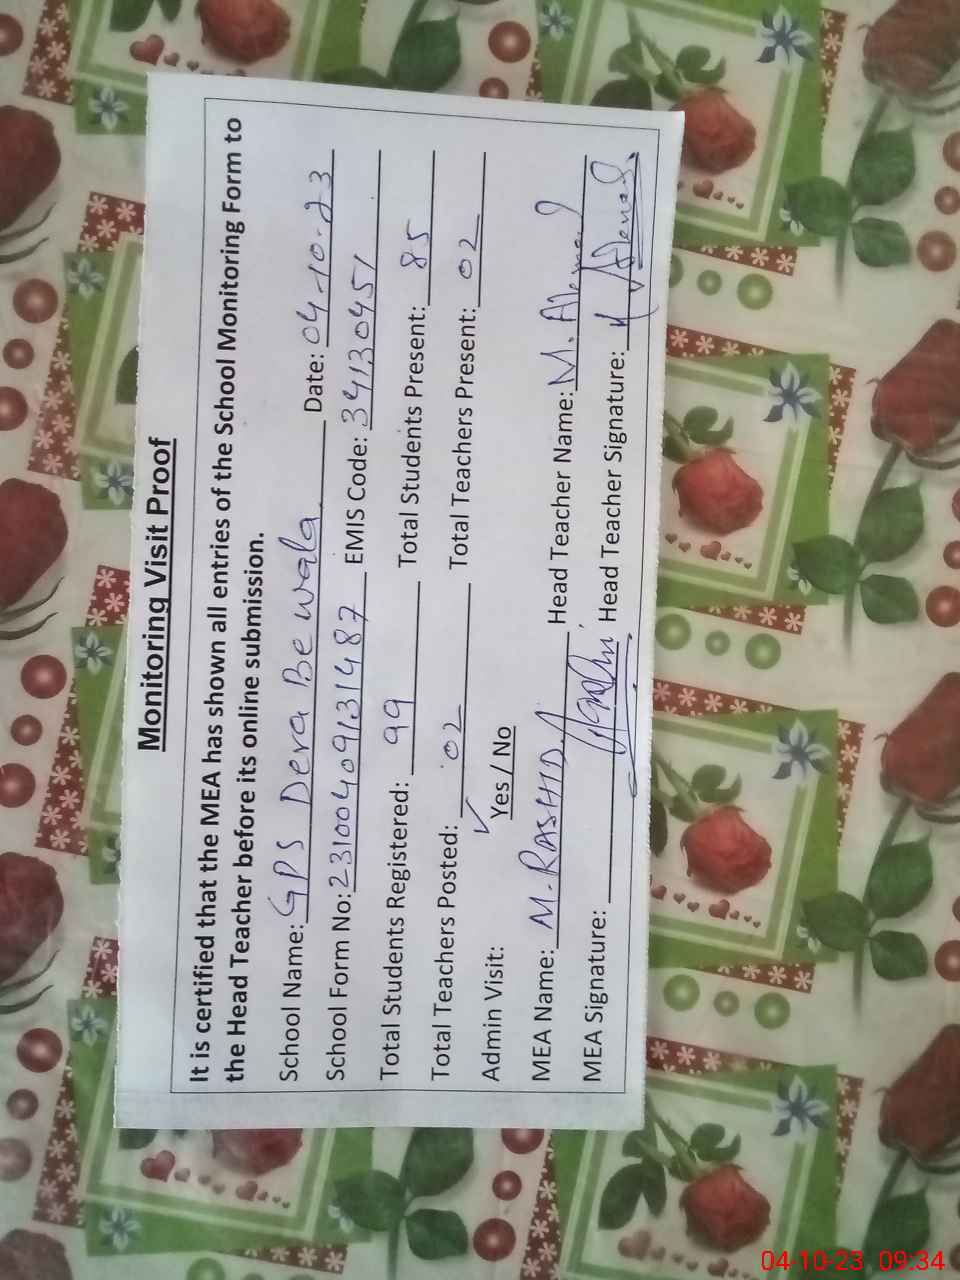 Monitoring Visit Proof
It is certified that the MEA has shown all entries of the School Monitoring Form to
the Head Teacher before its online submission.
School Name: GPS Dera Be wala Date: 04-10-23
School Form No: 23100409131487 EMIS Code: 34130451
Total Students Registered: 99 Total Students Present: 85
Total Teachers Posted: 02 Total Teachers Present: 02
Admin Visit: ✓ Yes / No
MEA Name: M-RASHID Head Teacher Name: M.
MEA Signature: Head Teacher Signature:
04-10-23 09:34